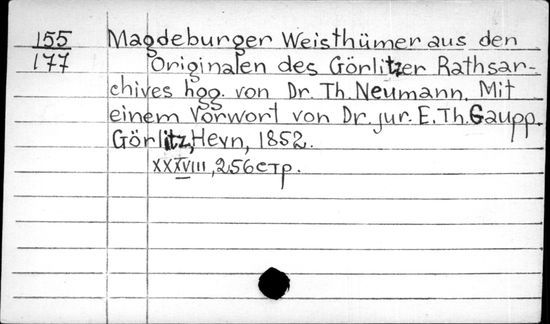 155 Magdeburger Weisthümer aus den
177 Originalen des Görlitzer Rathsar-
chives hgg. von Dr. Th. Neumann. Mit
einem Vorwort von Dr. jur. E. Th. Gaupp.
Görlitz, Heyn, 1852.
XXXVIII, 256 стр.